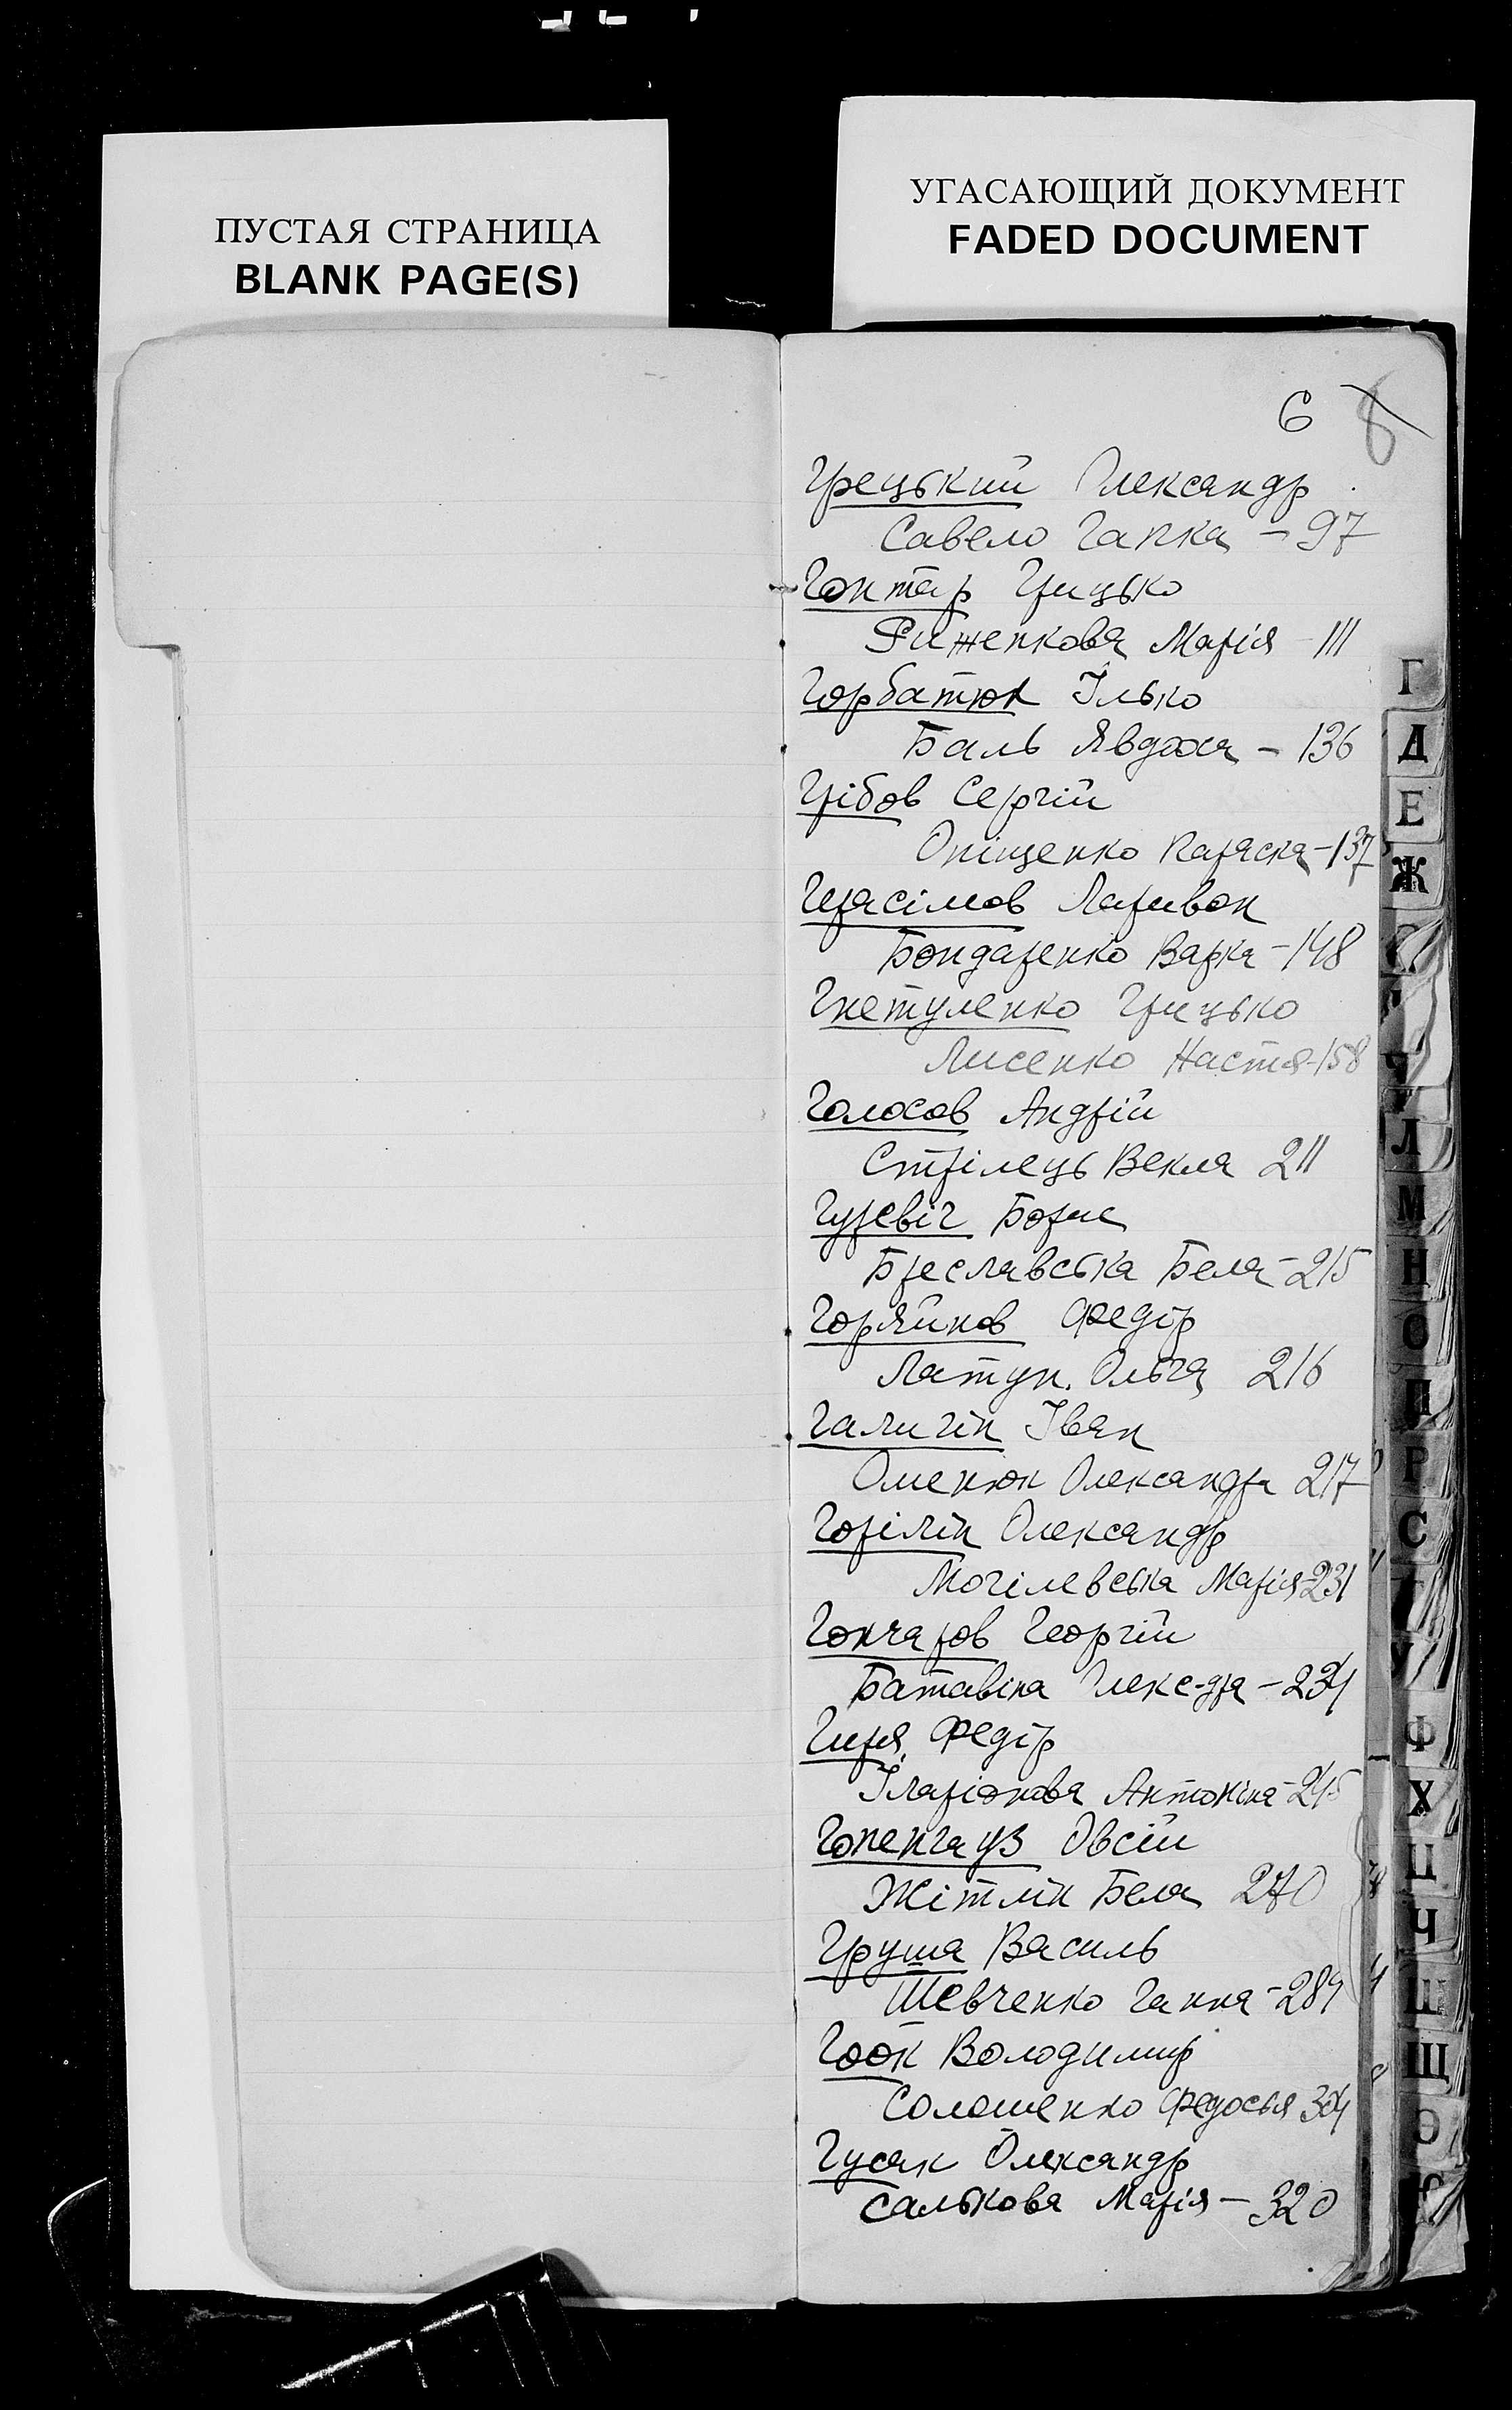 ПУСТАЯ СТРАНИЦА
BLANK PAGE(S)
УГАСАЮЩИЙ ДОКУМЕНТ
FADED DOCUMENT
6 8
Грецький Олександр
Савело Гапка - 97
Гонтар Грицько
Риженкова Марія - 111
Горбатюк Ілько
Баль Явдоха - 136
Грібов Сергій
Оніщенко Параска - 137
Герасімов Ларивон
Бондаренко Варка - 148
Гнетуленко Грицько
Лисенко Настя - 158
Голосов Андрій
Стрілець Векла 211
Гуревіч Борис
Бреславська Бела - 215
Горяйнов Федір
Латун Ольга 216
Галигін Іван
Оменюк Олександра 217
Горілін Олександр
Могілевська Марія - 231
Гончаров Георгій
Батавіна Олекс-дра - 234
Гиря Федір
Іларіонова Антоніна - 245
Гопенгауз Овсій
Жітлін Бела 270
Груша Василь
Шевченко Ганна - 289
Гоок Володимир
Соломенко Федосья 304
Гусак Олександр
Салькова Марія - 320
Г
Д
Е
Ж
Л
М
Н
О
П
Р
С
Т
У
Ф
Х
Ц
Ч
Ш
Щ
Э